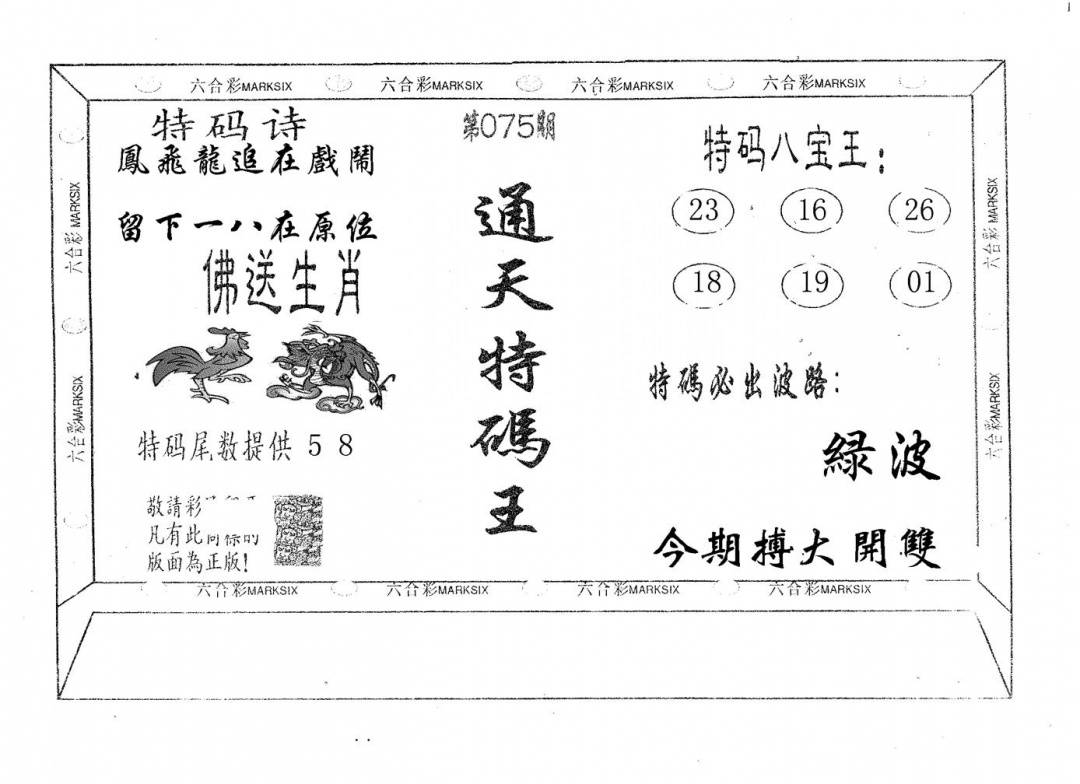 六合彩MARKSIX 六合彩MARKSIX 六合彩MARKSIX 六合彩MARKSIX
特码诗
鳳飛龍追在戲鬧
留下一八在原位
佛送生肖
特码尾数提供 5 8
敬請彩
凡有此同標的
版面為正版!
第075期
通天特碼王
特码八宝王:
23 16 26
18 19 01
特碼必出波路:
緑波
今期搏大開雙
六合彩MARKSIX
六合彩MARKSIX
六合彩MARKSIX
六合彩MARKSIX
六合彩MARKSIX 六合彩MARKSIX 六合彩MARKSIX 六合彩MARKSIX